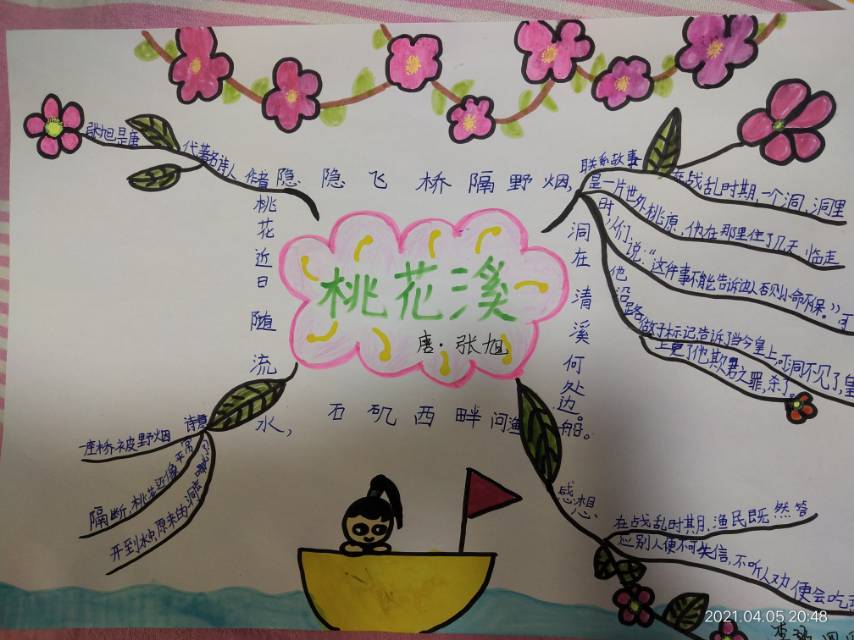 桃花溪
唐·张旭
隐隐飞桥隔野烟,
石矶西畔问渔船。
桃花近日随流水,
洞在清溪何处边。
张旭是唐
代著名诗人
联系故事
在战乱时期,一个洞,洞里
是一片世外桃原,他在那里住了几天,临走
时,们说:“这件事不能告诉
他沿路
做了标记告诉了当今皇上,洞不见了,皇
上更了他欺君之罪,杀了
诗意
一座桥被野烟
隔断,桃花
开到
感想
在战乱时期,渔民既然答
应别人便不何失信,不听人劝便会吃
2021.04.05 20:48